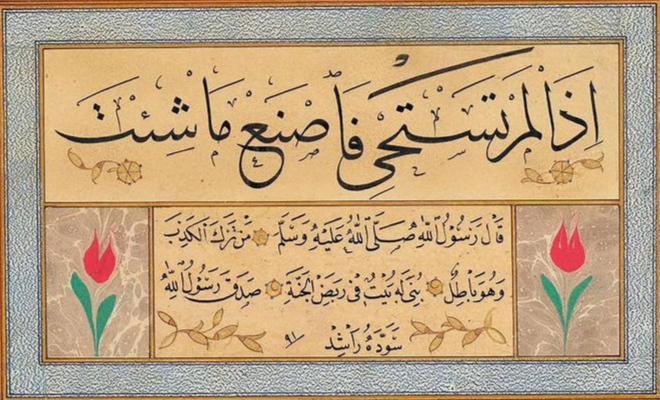 اِذَا لَمْ تَسْتَحْيِ فَاصْنَعْ مَا شِئْتَ
قَالَ رَسُولُ اللّٰهِ صَلَّى اللّٰهُ عَلَيْهِ وَسَلَّمَ مَنْ تَرَكَ الْكَذِبَ
وَهُوَ بَاطِلٌ بُنِيَ لَهُ بَيْتٌ فِي رَبَضِ الْجَنَّةِ صَدَقَ رَسُولُ اللّٰهِ
سَوَّدَهُ رَاشِدْ ٩١